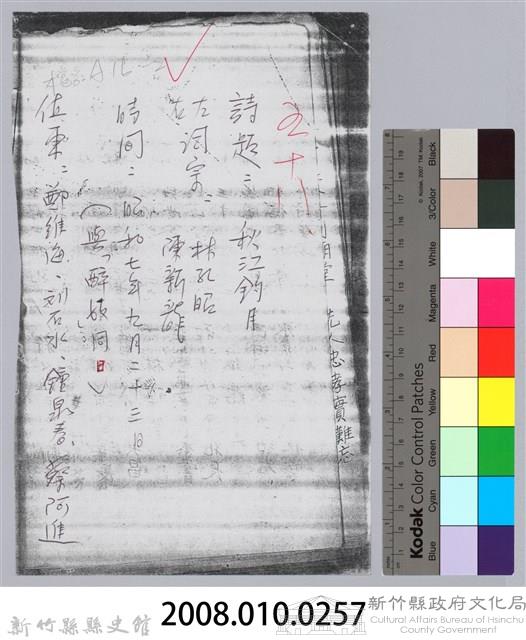 五十八、
先人忠孝實難忘
詩題：秋江釣月
左詞宗：林孔昭
右 陳新龍
時間：昭和七年九月二十三日
（與「醉妓」同日）
值東：鄭維海、刘石水、鐘泉春、蔡阿進
Kodak Color Control Patches
© Kodak, 2007 TM: Kodak
Blue
Cyan
Green
Yellow
Red
Magenta
White
3/Color
Black
2008.010.0257
新竹縣縣史館
新竹縣政府文化局
Cultural Affairs Bureau of Hsinchu
County Government